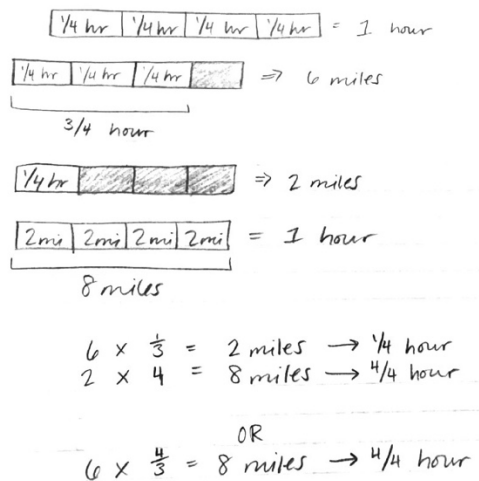 1/4 hr 1/4 hr 1/4 hr 1/4 hr = 1 hour
1/4 hr 1/4 hr 1/4 hr ⇒ 6 miles
3/4 hour
1/4 hr ⇒ 2 miles
2mi 2mi 2mi 2mi = 1 hour
8 miles
6 × 1/3 = 2 miles → 1/4 hour
2 × 4 = 8 miles → 4/4 hour
OR
6 × 4/3 = 8 miles → 4/4 hour